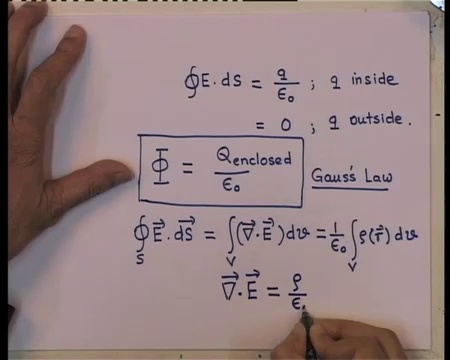 ∮E.ds = q/ϵ₀ ; q inside
= 0 ; q outside.
Φ = Qenclosed/ϵ₀
Gauss's Law
∮_S E⃗.dS⃗ = ∫_V (∇⃗.E⃗)dv = 1/ϵ₀ ∫_V ρ(r⃗)dv
∇⃗.E⃗ = ρ/ϵ